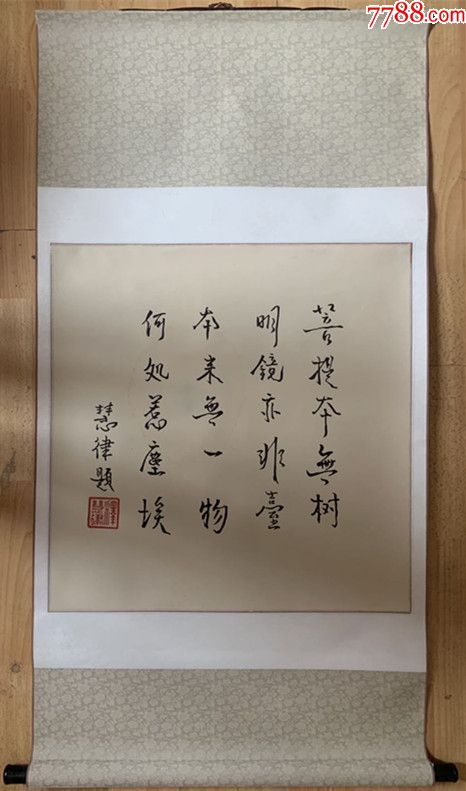 7788.com
菩提本無树
明鏡亦非臺
本来無一物
何处惹塵埃
慧律題